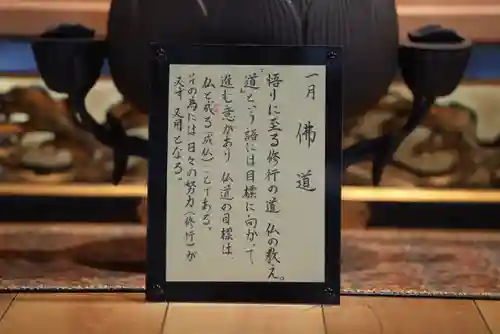 一月 佛道
悟りに至る修行の道 仏の教え。
"道"という語には目標に向かって
進む意があり 仏道の目標は、
仏と成る（成仏）ことである。
その為には日々の努力（修行）が
必ず必用となる。